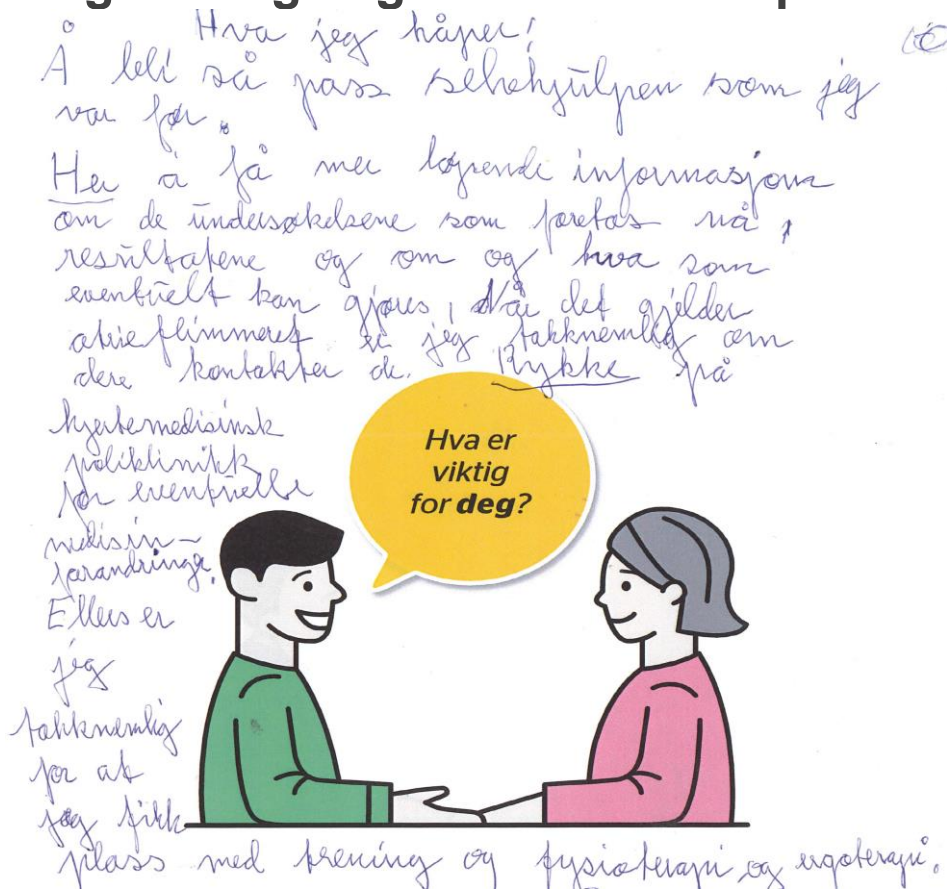 Hva jeg håper!
Å bli så pass selvhjulpen som jeg
var før.
Her å få mer løpende informasjon
om de undersøkelsene som foretas nå,
resultatene og om og hva som
eventuelt kan gjøres, Når det gjelder
atrieflimmeret er jeg takknemlig om
dere kontakter dr. Rykke på
hjertemedisinsk
poliklinikk
for eventuelle
medisin-
forandringer.
Ellers er
jeg
takknemlig
for at
jeg fikk
plass med trening og fysioterapi og ergoterapi.
Hva er
viktig
for deg?